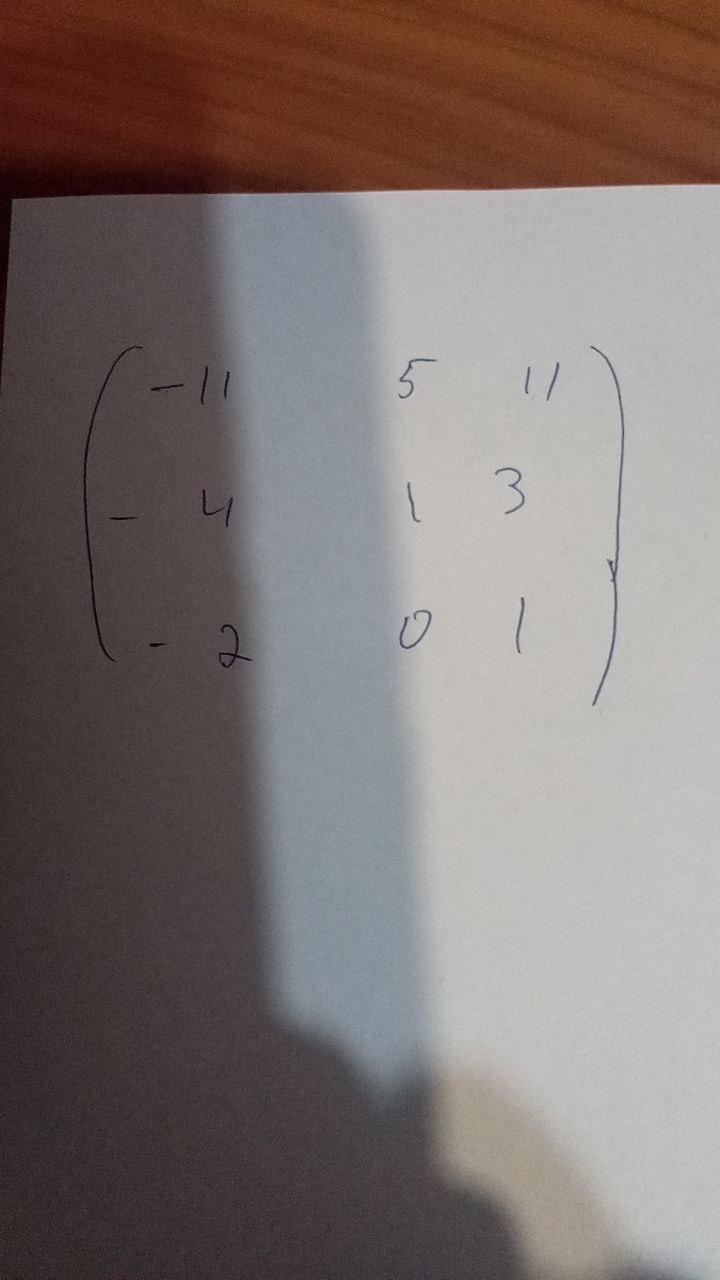 -11 5 11
- 4 1 3
- 2 0 1